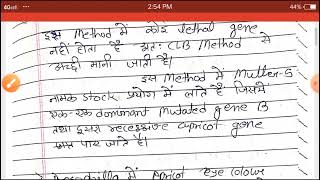 4Gull
2:54 PM
44%
इस Method में कोई lethal gene
नहीं होता है अतः CLB Method से
अच्छी मानी जाती है।
इस Method में Muller-5
नामक stock प्रयोग में लाते हैं जिसमें
एक-एक dominant mutated gene B
तथा दूसरा recessive apricot gene
पाए जाते हैं।
में Apricot eye colour